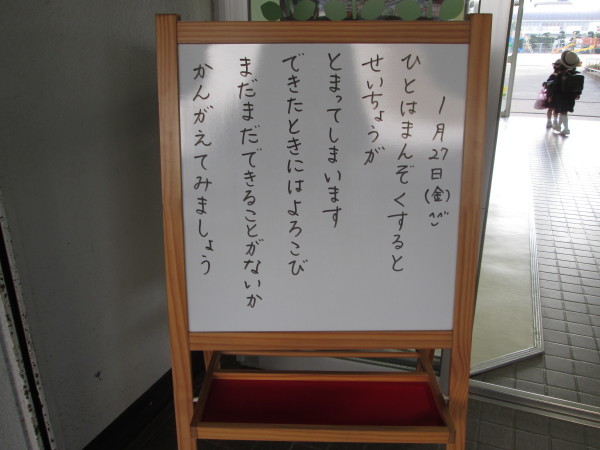 1月27日(金)^^
ひとはまんぞくすると
せいちょうが
とまってしまいます
できたときにはよろこび
まだまだできることがないか
かんがえてみましょう